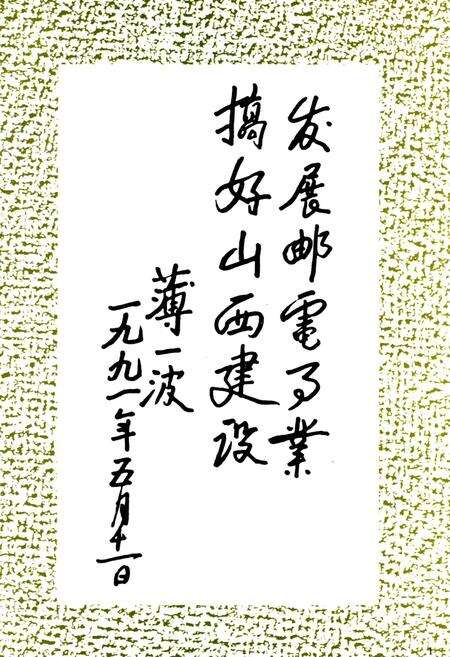 发展邮電事業
搞好山西建设
薄一波
一九九一年五月十一日